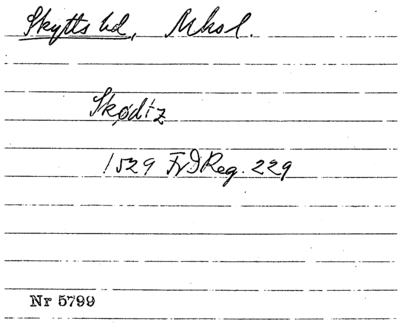 Skytts hd, Mhsl.
Skødiz
1529 FrIReg. 229
Nr 5799